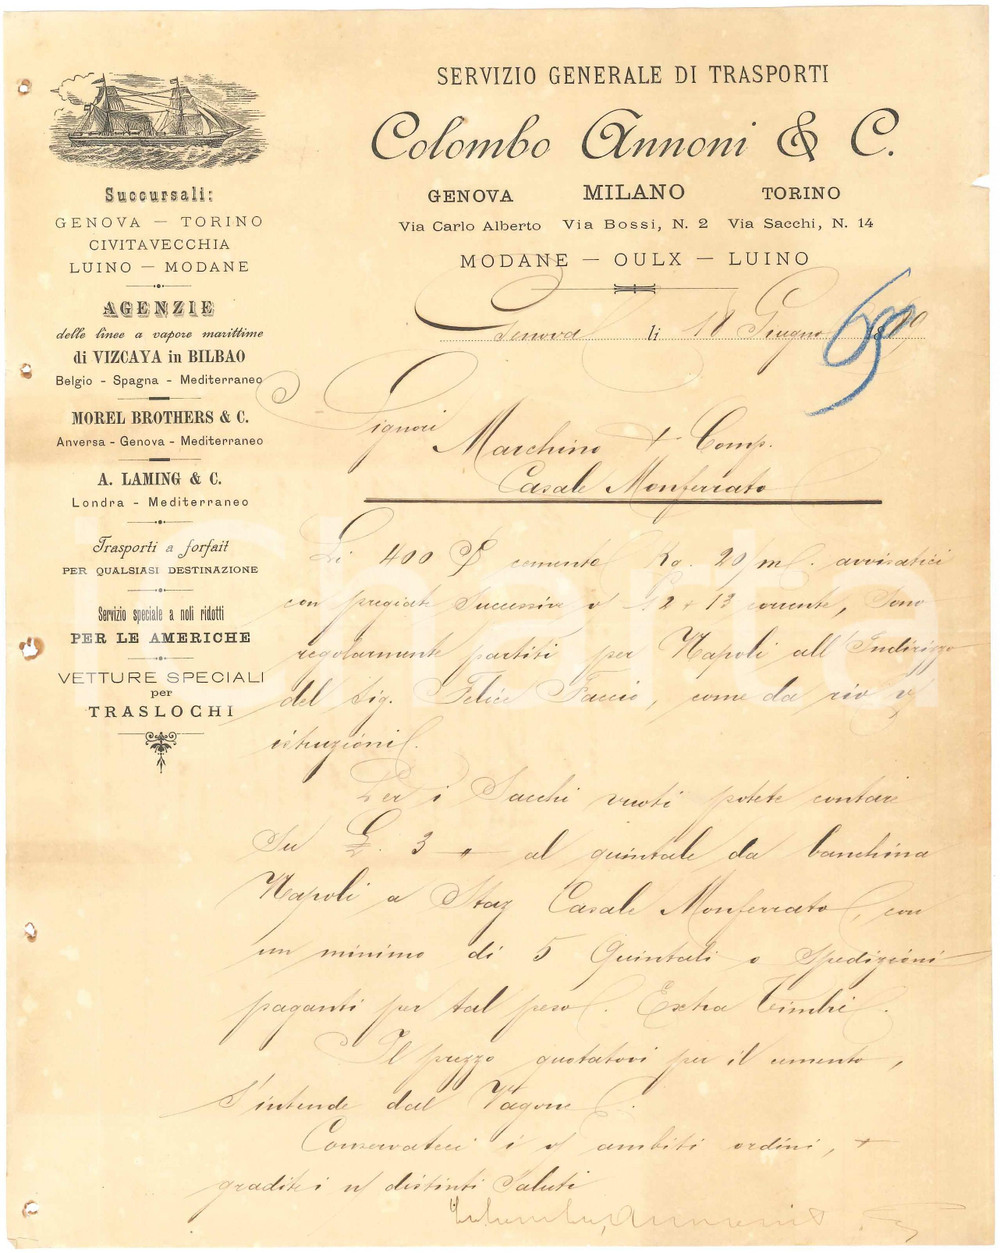 SERVIZIO GENERALE DI TRASPORTI
Colombo Annoni & C.
GENOVA MILANO TORINO
Via Carlo Alberto Via Bossi, N. 2 Via Sacchi, N. 14
MODANE – OULX – LUINO
Succursali:
GENOVA – TORINO
CIVITAVECCHIA
LUINO – MODANE
AGENZIE
delle linee a vapore marittime
di VIZCAYA in BILBAO
Belgio - Spagna - Mediterraneo
MOREL BROTHERS & C.
Anversa - Genova - Mediterraneo
A. LAMING & C.
Londra - Mediterraneo
Trasporti a forfait
PER QUALSIASI DESTINAZIONE
Servizio speciale a noli ridotti
PER LE AMERICHE
VETTURE SPECIALI
per
TRASLOCHI
Genova li 18 Giugno 1890
Signori
Marchino & Comp.
Casale Monferrato
Li 400 S/ cemento Kg. 20/m. avvisatici
con pregiate successive 12 e 13 corrente, sono
regolarmente partiti per Napoli all'Indirizzo
del Sig. Felice Faccio, come da
istruzioni.
Per i Sacchi vuoti potete contare
Su £. 3 „ al quintale da banchina
Napoli a Staz Casale Monferrato, con
un minimo di 5 Quintali o Spedizioni
paganti per tal peso. Extra Timbri.
Il prezzo quotatovi per il cemento,
S'intende dal Vagone.
Conservateci i v/ ambiti ordini, &
gradite i n/ distinti Saluti
Colombo, Annoni & C.
iCharta